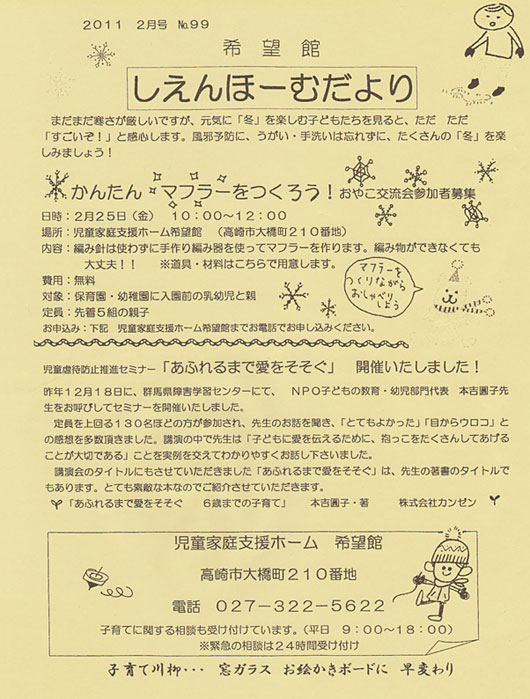 2011 2月号 №99
希望館
しえんほーむだより
まだまだ寒さが厳しいですが、元気に「冬」を楽しむ子どもたちを見ると、ただ ただ
「すごいぞ！」と感心します。風邪予防に、うがい・手洗いは忘れずに、たくさんの「冬」を楽
しみましょう！
かんたん マフラーをつくろう！おやこ交流会参加者募集
日時：2月25日（金） 10：00～12：00
場所：児童家庭支援ホーム希望館 （高崎市大橋町210番地）
内容：編み針は使わずに手作り編み器を使ってマフラーを作ります。編み物ができなくても
大丈夫！！ ※道具・材料はこちらで用意します。
費用：無料
対象：保育園・幼稚園に入園前の乳幼児と親
定員：先着5組の親子
お申込み：下記 児童家庭支援ホーム希望館までお電話でお申し込みください。
マフラーを
つくりながら
おしゃべり
しよう
児童虐待防止推進セミナー「あふれるまで愛をそそぐ」 開催いたしました！
昨年12月18日に、群馬県障害学習センターにて、 NPO子どもの教育・幼児部門代表 本吉圓子先
生をお呼びしてセミナーを開催いたしました。
定員を上回る130名ほどの方が参加され、先生のお話を聞き、「とてもよかった」「目からウロコ」と
の感想を多数頂きました。講演の中で先生は「子どもに愛を伝えるために、抱っこをたくさんしてあげる
ことが大切である」ことを実例を交えてわかりやすくお話し下さいました。
講演会のタイトルにもさせていただきました「あふれるまで愛をそそぐ」は、先生の著書のタイトルで
もあります。とても素敵な本なのでご紹介させていただきます。
「あふれるまで愛をそそぐ 6歳までの子育て」 本吉圓子・著 株式会社カンゼン
児童家庭支援ホーム 希望館
高崎市大橋町210番地
電話 027-322-5622
子育てに関する相談も受け付けています。（平日 9：00～18：00）
※緊急の相談は24時間受け付け
子育て川柳・・・ 窓ガラス お絵かきボードに 早変わり